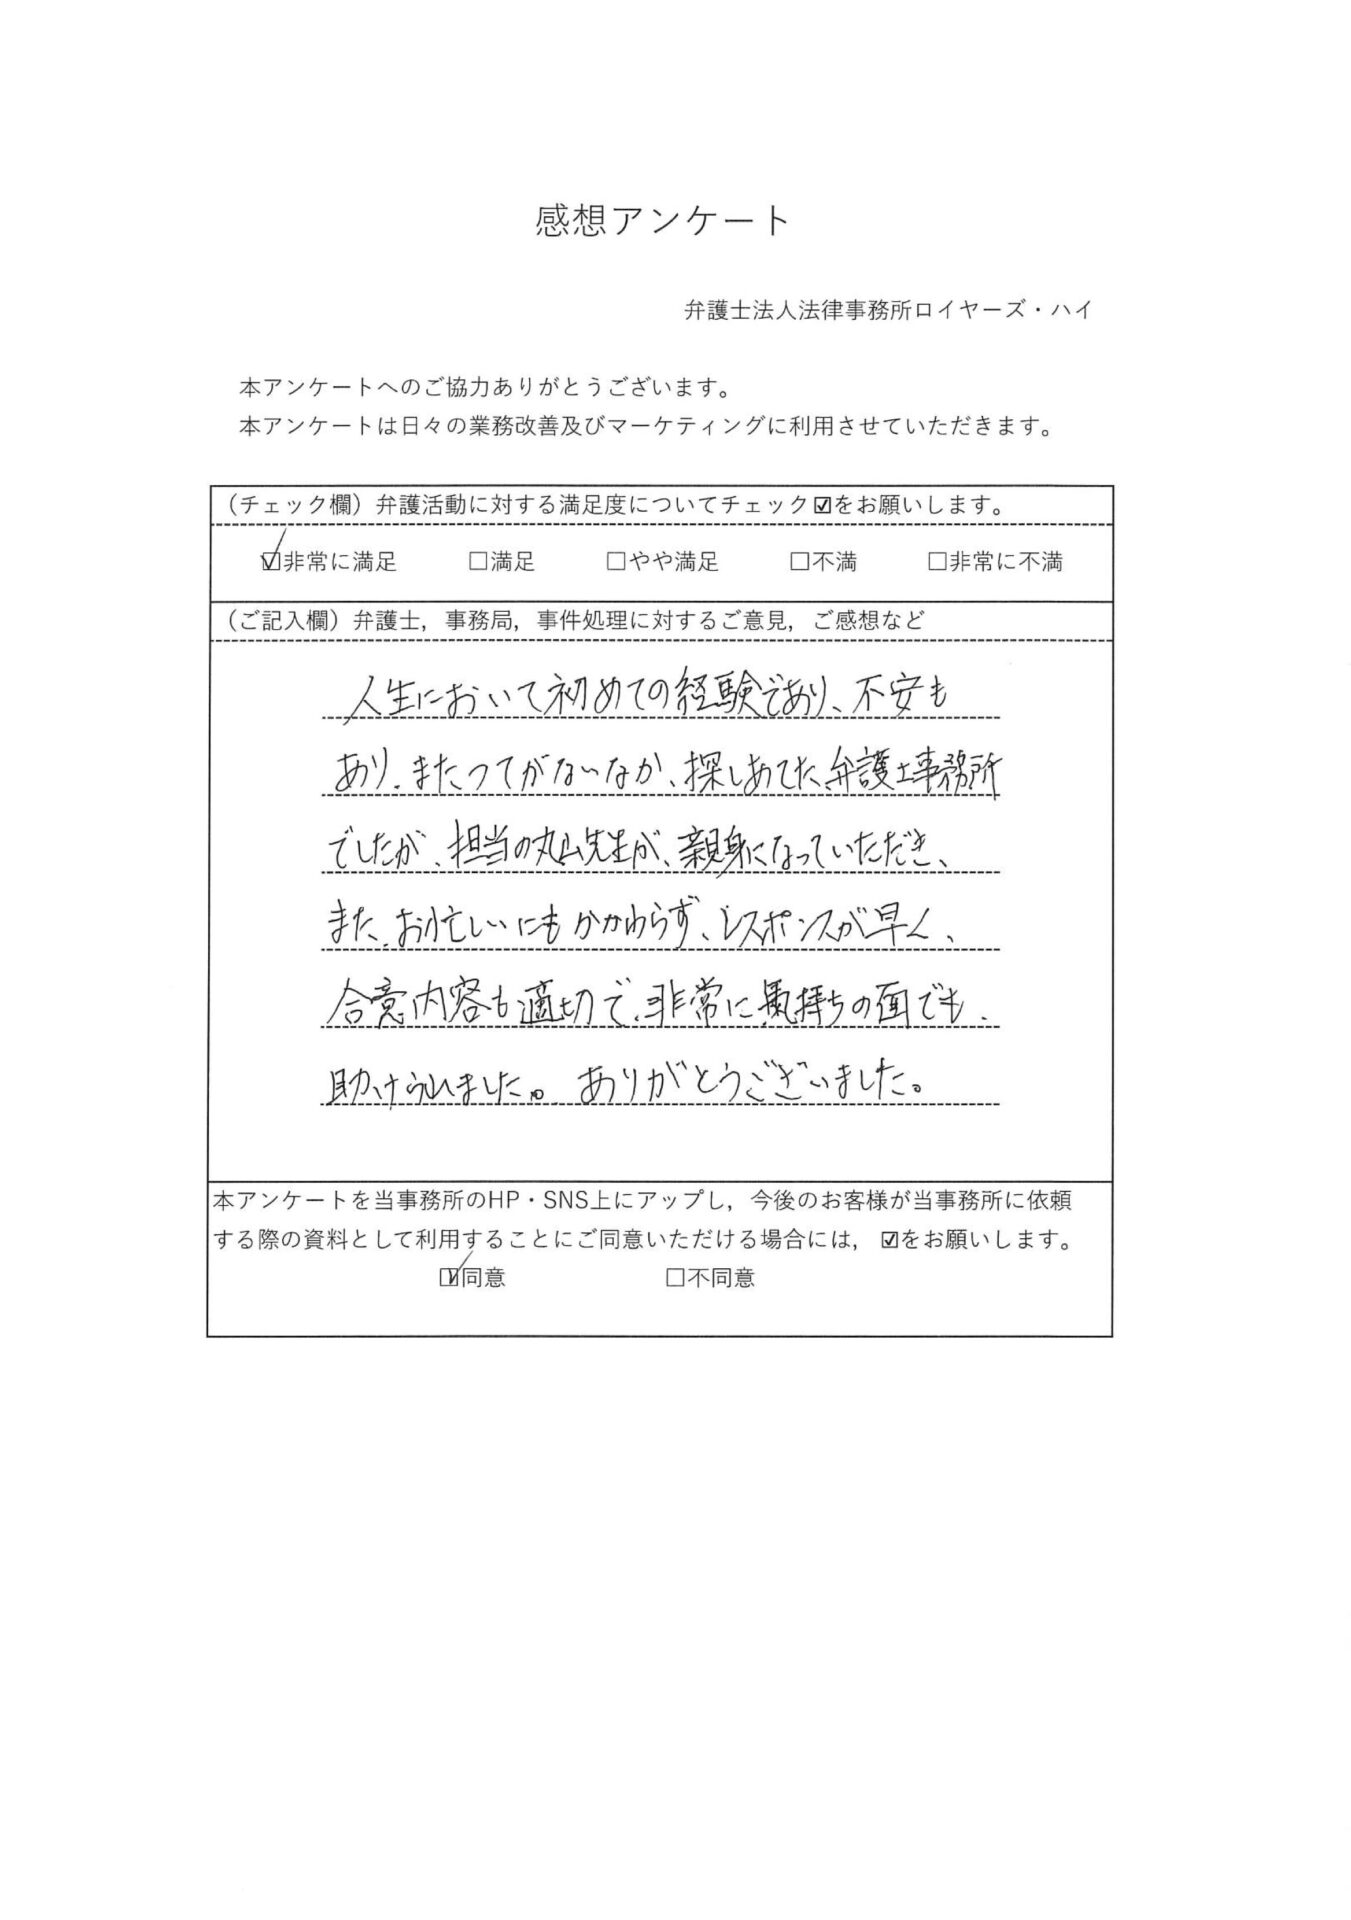 感想アンケート
弁護士法人法律事務所ロイヤーズ・ハイ
本アンケートへのご協力ありがとうございます。
本アンケートは日々の業務改善及びマーケティングに利用させていただきます。
（チェック欄）弁護活動に対する満足度についてチェック☑をお願いします。
☑非常に満足 □満足 □やや満足 □不満 □非常に不満
（ご記入欄）弁護士，事務局，事件処理に対するご意見，ご感想など
人生において初めての経験であり、不安も
あり、またつてがないなか、探しあてた弁護士事務所
でしたが、担当の丸山先生が、親身になっていただき、
また、お忙しいにもかかわらず、レスポンスが早く、
合意内容も適切で、非常に気持ちの面でも、
助けられました。ありがとうございました。
本アンケートを当事務所のHP・SNS上にアップし，今後のお客様が当事務所に依頼
する際の資料として利用することにご同意いただける場合には，☑をお願いします。
☑同意 □不同意